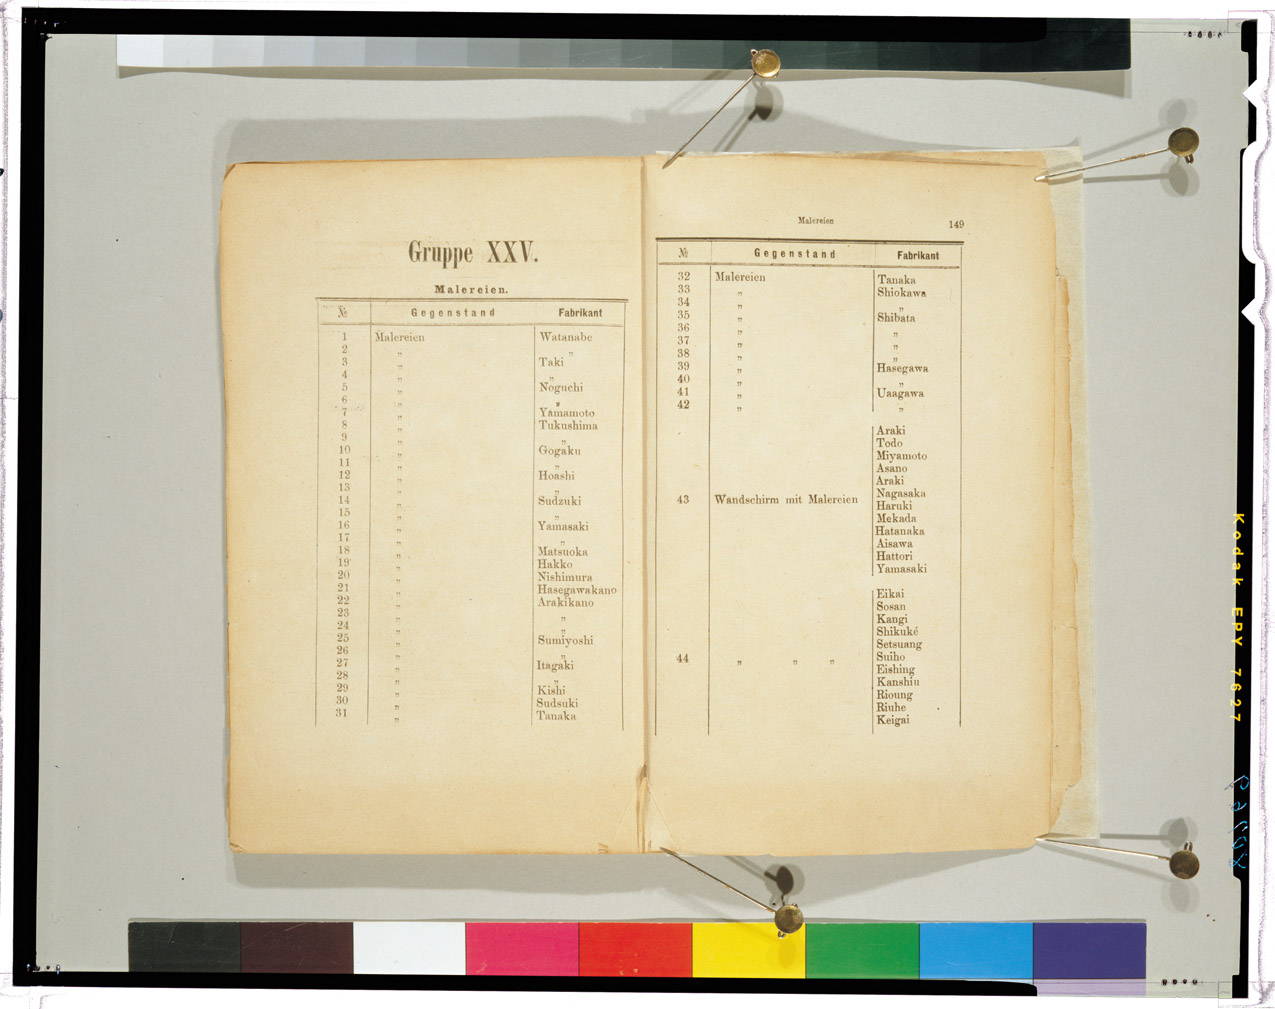 Gruppe XXV.
Malereien.
№ Gegenstand Fabrikant
1 Malereien Watanabe
2 „ „
3 „ Taki
4 „ „
5 „ Noguchi
6 „ „
7 „ Yamamoto
8 „ Tukushima
9 „ „
10 „ Gogaku
11 „ „
12 „ Hoashi
13 „ „
14 „ Sudzuki
15 „ „
16 „ Yamasaki
17 „ „
18 „ Matsuoka
19 „ Hakko
20 „ Nishimura
21 „ Hasegawakano
22 „ Arakikano
23 „ „
24 „ „
25 „ Sumiyoshi
26 „ „
27 „ Itagaki
28 „ „
29 „ Kishi
30 „ Sudsuki
31 „ Tanaka
Malereien 149
№ Gegenstand Fabrikant
32 Malereien Tanaka
33 „ Shiokawa
34 „ „
35 „ Shibata
36 „ „
37 „ „
38 „ „
39 „ Hasegawa
40 „ „
41 „ Uaagawa
42 „ „
Araki
Todo
Miyamoto
Asano
Araki
43 Wandschirm mit Malereien Nagasaka
Haruki
Mekada
Hatanaka
Aisawa
Hattori
Yamasaki
Eikai
Sosan
Kangi
Shikuké
Setsuang
44 „ „ „ Suiho
Eishing
Kanshiu
Rioung
Riuhe
Keigai
Kodak EPY 7627